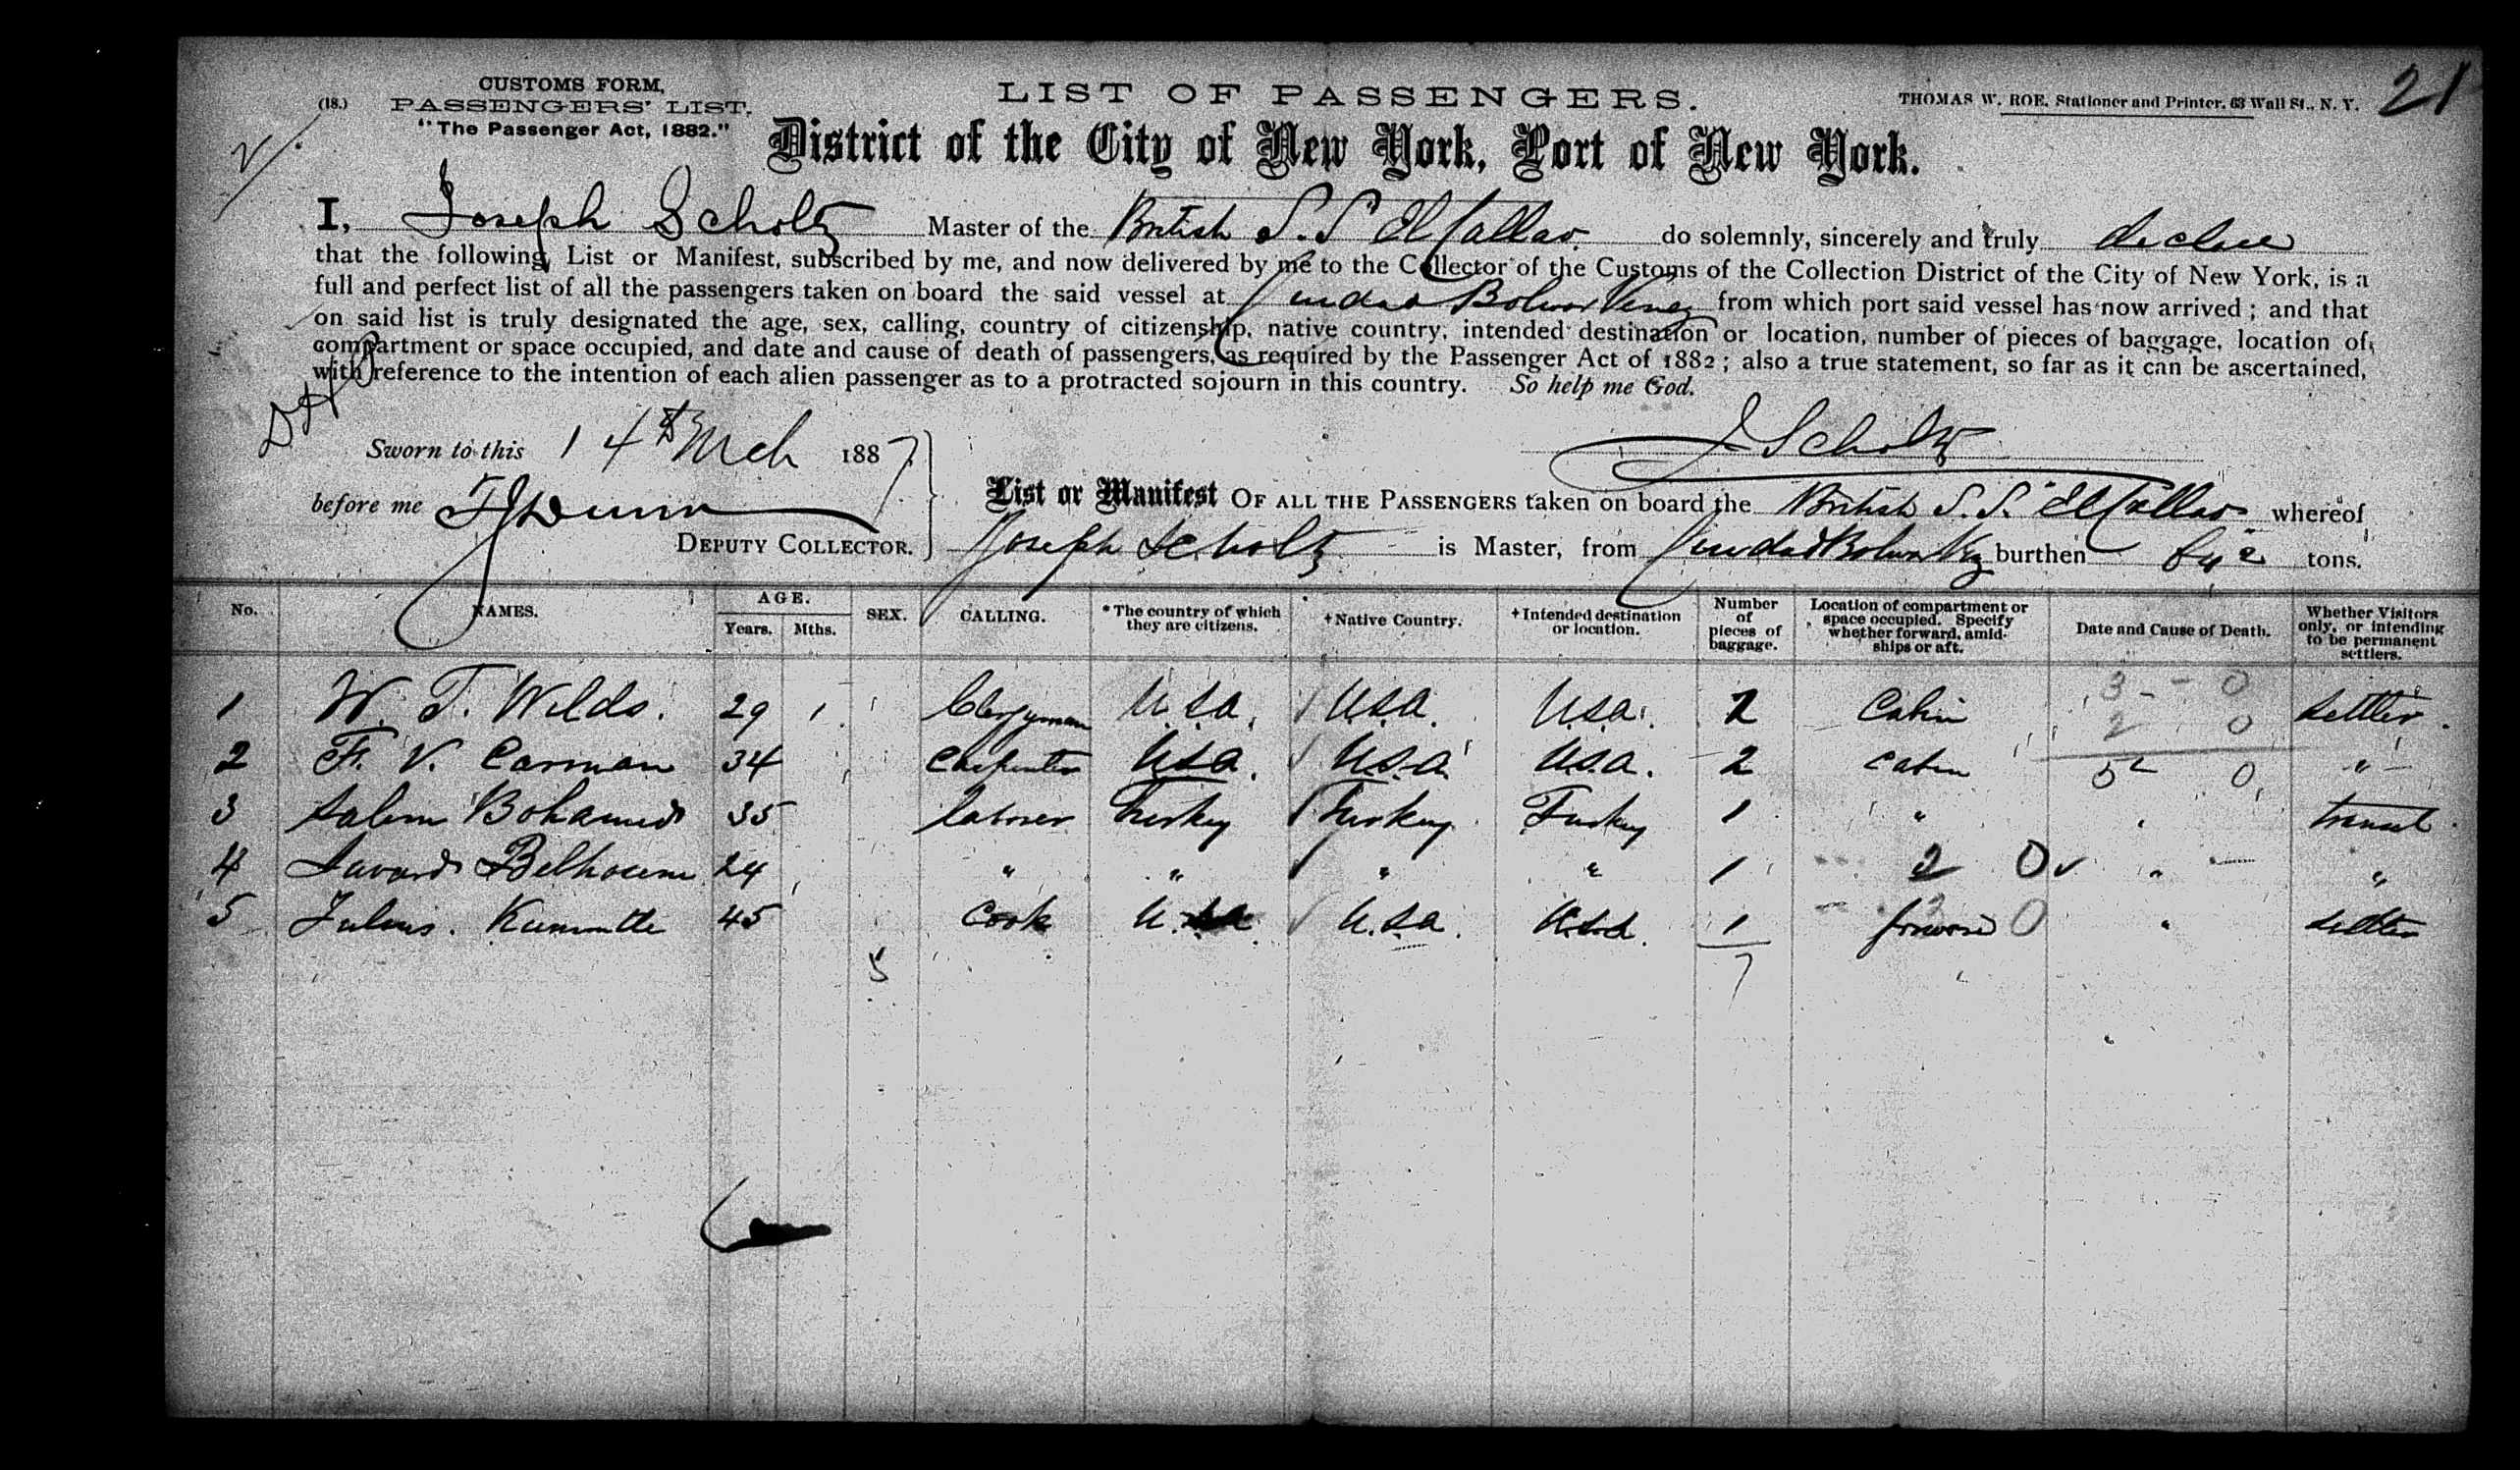 CUSTOMS FORM,
(18.) PASSENGERS' LIST.
"The Passenger Act, 1882."
LIST OF PASSENGERS.
THOMAS W. ROE, Stationer and Printer, 63 Wall St., N. Y.
21
District of the City of New York, Port of New York.
I, Joseph Scholtz Master of the British S.S El Callao. do solemnly, sincerely and truly declare
that the following List or Manifest, subscribed by me, and now delivered by me to the Collector of the Customs of the Collection District of the City of New York, is a
full and perfect list of all the passengers taken on board the said vessel at Ciudad Bolivar Venez from which port said vessel has now arrived; and that
on said list is truly designated the age, sex, calling, country of citizenship, native country, intended destination or location, number of pieces of baggage, location of,
compartment or space occupied, and date and cause of death of passengers, as required by the Passenger Act of 1882; also a true statement, so far as it can be ascertained,
with reference to the intention of each alien passenger as to a protracted sojourn in this country. So help me God.
J Scholtz
Sworn to this 14th Mch 1887
before me
DEPUTY COLLECTOR.
List or Manifest OF ALL THE PASSENGERS taken on board the British S.S. "El Callao" whereof
Joseph Scholtz is Master, from Ciudad Bolivar Vz burthen tons.
No. NAMES. AGE. Years. Mths. SEX. CALLING. *The country of which they are citizens. +Native Country. +Intended destination or location. Number of pieces of baggage. Location of compartment or space occupied. Specify whether forward, amidships or aft. Date and Cause of Death. Whether Visitors only, or intending to be permanent settlers.
1 W. T. Wilds. 29 Clergyman U.S.a. U.S.a. U.S.a. 2 Cabin settler.
2 F. V. Carman 34 Carpenter U.S.a. U.S.a. U.S.a. 2 Cabin "
3 Salem 35 laborer Turkey Turkey Turkey 1 " transit
4 24 " " " " 1 2 0 " "
5 Julius. 45 Cook U.S.a U.S.a. U.S.a. 1 forward 0 " settler
5 7